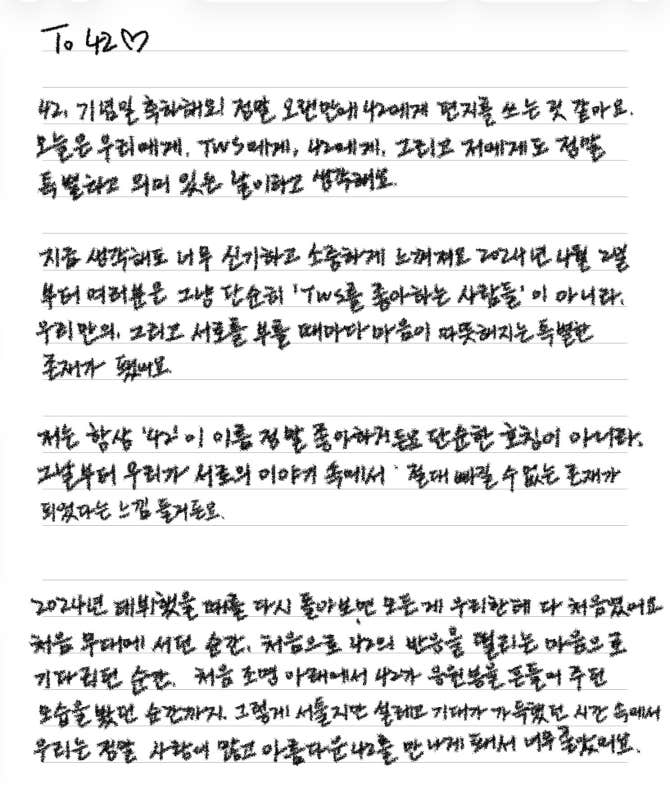 To 42♡
42, 기념일 축하해요! 정말 오랜만에 42에게 편지를 쓰는 것 같아요.
오늘은 우리에게, TWS에게, 42에게, 그리고 저에게도 정말
특별하고 의미 있는 날이라고 생각해요.
지금 생각해도 너무 신기하고 소중하게 느껴져요 2024년 4월 2일
부터 여러분은 그냥 단순히 'TWS를 좋아하는 사람들'이 아니라,
우리만의, 그리고 서로를 부를 때마다 마음이 따뜻해지는 특별한
존재가 됐어요.
저는 항상 '42'이 이름 정말 좋아하거든요 단순한 호칭이 아니라,
그날부터 우리가 서로의 이야기 속에서 절대 빠질 수 없는 존재가
되었다는 느낌 들거든요.
2024년 데뷔했을 때를 다시 돌아보면 모든 게 우리한테 다 처음였어요
처음 무대에 서던 순간, 처음으로 42의 반응을 떨리는 마음으로
기다리던 순간, 처음 조명 아래에서 42가 응원봉을 흔들어 주던
모습을 봤던 순간까지. 그렇게 서툴지만 설레고 기대가 가득했던 시간 속에서
우리는 정말 사랑이 많고 아름다운 42를 만나게 돼서 너무 좋았어요.